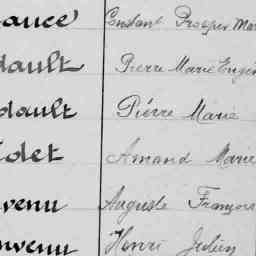 ance Constant Prosper Mar
dault Pierre Marie Eugèn
dault Pierre Marie
det Amand Marie
venu Auguste François
nvenu Henri Julien